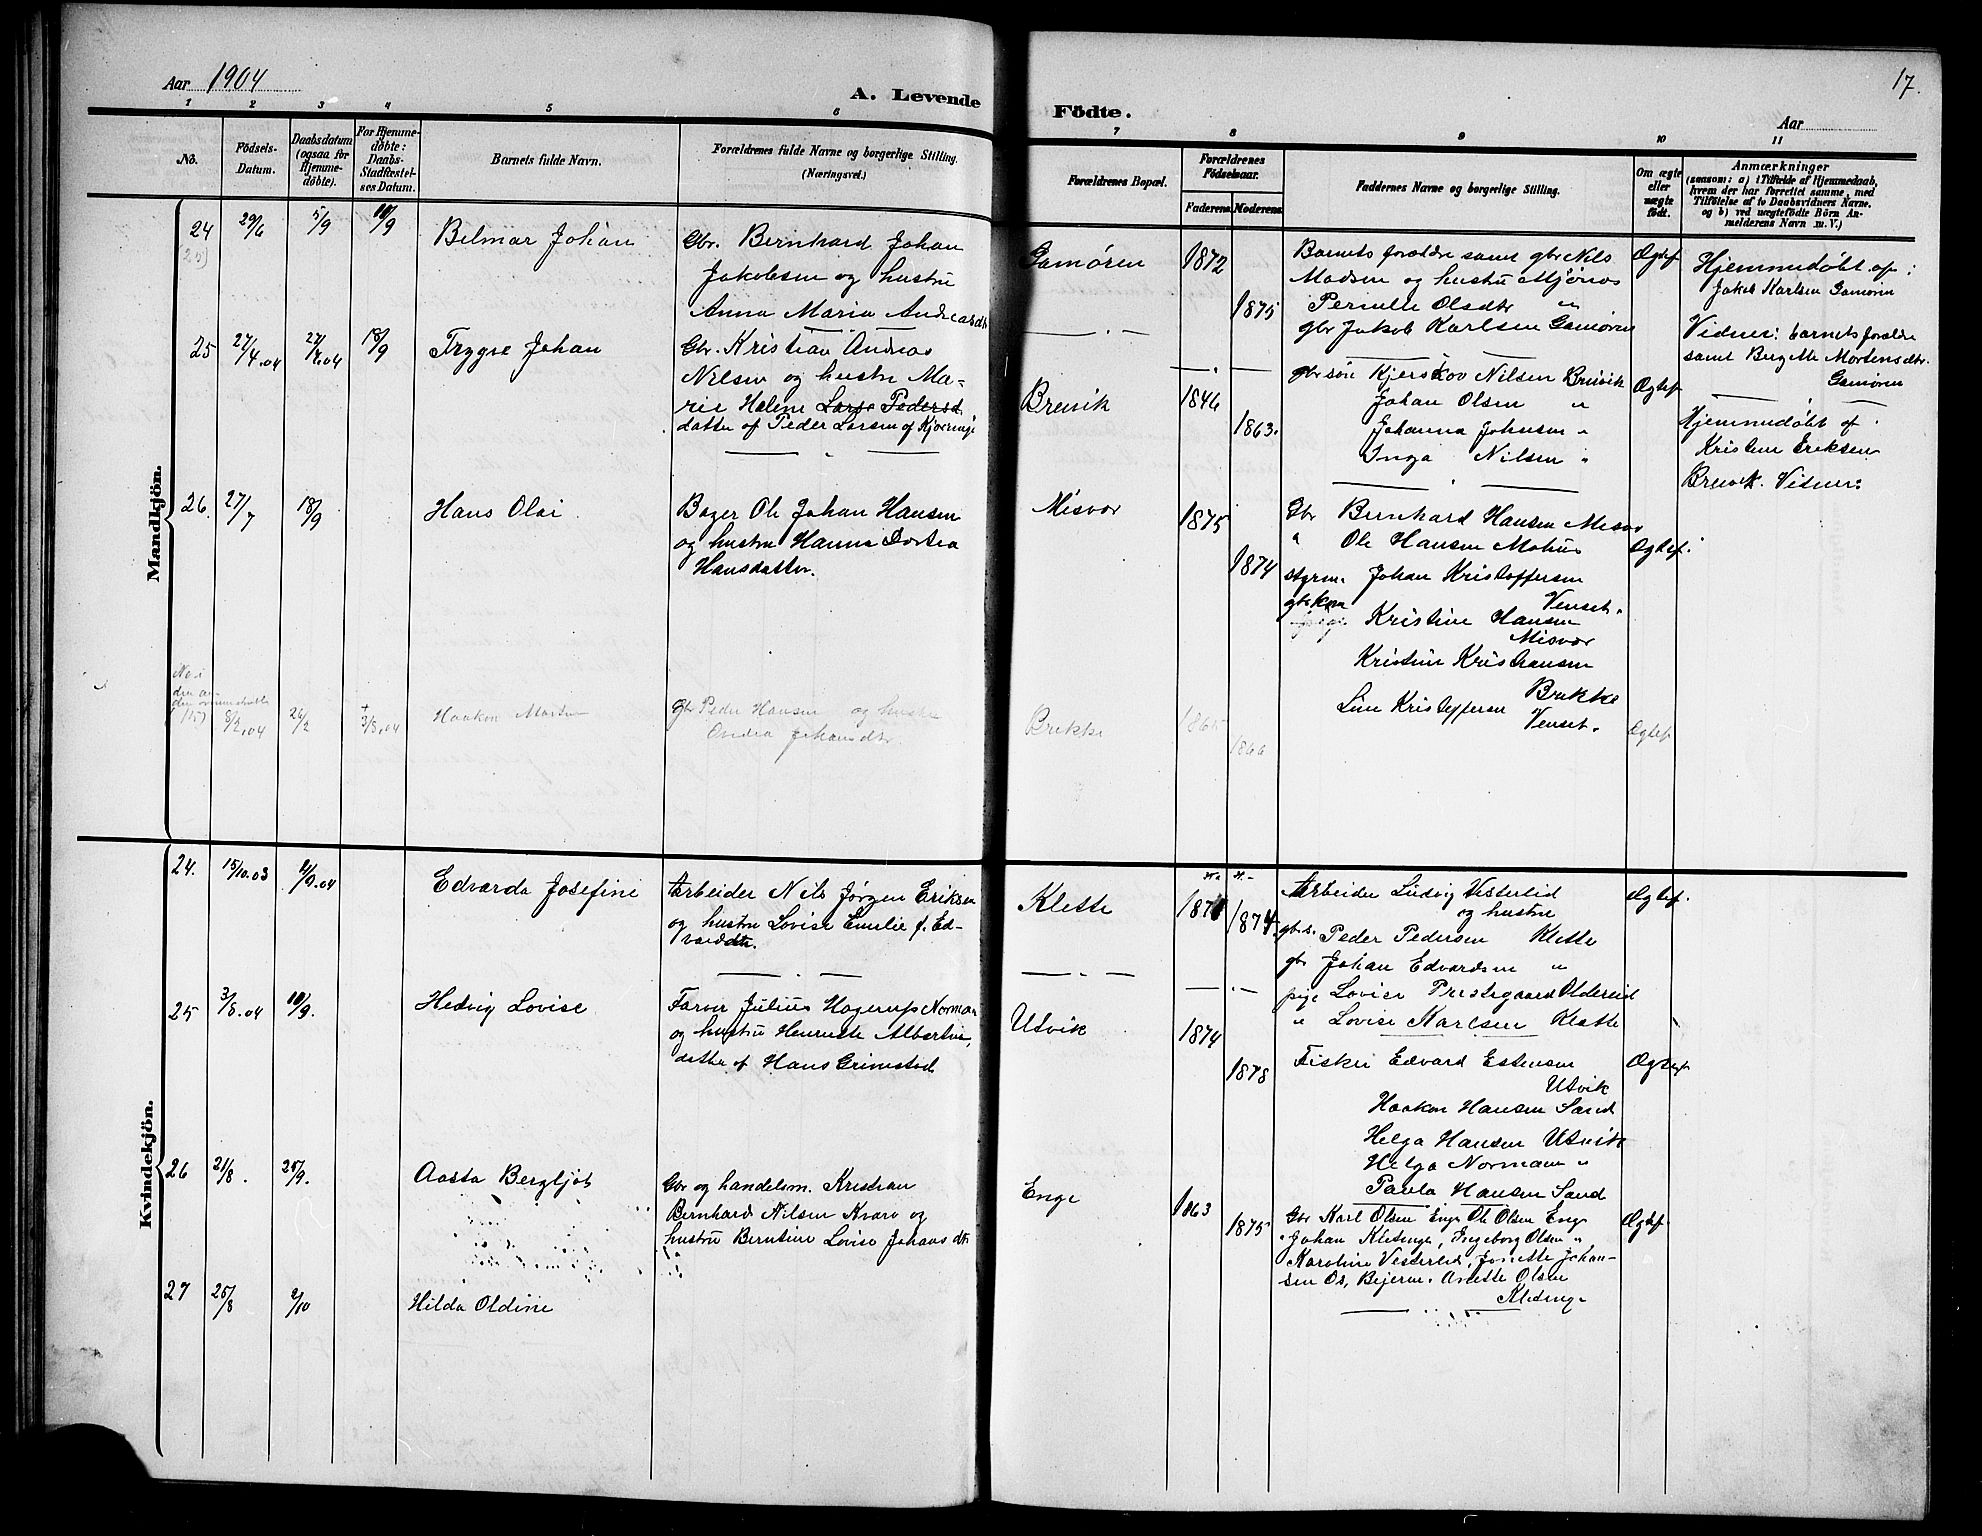 Aar 1904
A. Levende
1 2 3 4 5 6
No.
Födsels-Datum.
Daabsdatum (ogsaa for Hjemme-döbte).
For Hjemme-döbte: Daabs-Stadfæstel-ses Datum.
Barnets fulde Navn.
Forældrenes fulde Navne og borgerlige Stilling.
(Næringsvei.)
Mandkjön.
24 29/6 5/9 18/9 Belmar Johan
Gbr. Bernhard Johan
Jakobsen og hustru
Anna Maria Andreasdtr
25 27/4.04 27/4.04 18/9 Trygve Johan
Gbr. Kristian Andreas
Nilsen og hustru Ma-
rie Helene Lars Pedersd
datter af Peder Larsen af Kjerringø
26. 27/7 18/9 Hans Olai
Bager Ole Johan Hansen
og hustru Hanna Dortea
Hansdatter.
8/2.04 26/2 3/3.04 Haakon Martin
gbr Peder Hansen og hustru
Andrea Johansdtr.
Kvindekjön.
24. 15/10.03 4/9.04 Edvarda Josefine
Arbeider Nils Jørgen Eriksen
og hustru Lovise Emelie f. Ed-
vardsdtr.
25 3/5.04 18/9. Hedvig Lovise
Farver Julius Hagerup Norman
og hustru Henriette Albertine,
datter af Hans Grimstad
26 21/8. 25/9. Aasta Bergljot
Gbr og handelsm. Kristian
Bernhard Nilsen Kvarv og
hustru Berntine Lovise Johansdtr
27 25/8 2/10 Hilda Oldine
17.
Födte.
Aar
7 8 9 10 11
Forældrenes Bopæl.
Forældrenes Födselsaar.
Faderens Moderens
Faddernes Navne og borgerlige Stilling.
Om ægte eller uægte födt.
Anmærkninger
(saasom: a) i Tilfælde af Hjemmedaab,
hvem der har forrettet samme, med
Tilföielse af to Daabsvidners Navne.
og b) ved uægtefödte Börn An-
melderens Navn m. V.)
Gamøren 1872 1875
Barnets forældre samt gbr Nils
Madsen og hustru Mjønes
Pernille Olsdtr "
gbr Jakob Karlsen Gamøren
Ægtef
Hjemmedøbt af:
Jakob Karlsen Gamøren
Vidner: barnets forældre
samt Bergitte Mortensdtr.
Gamøren
Breivik 1846 1863.
gbr søn Kjerskov Nilsen Breivik
Johan Olsen "
Johanna Johnsen "
Inga Nilsen "
Ægtef
Hjemmedøbt af
Kristine Eriksen
Breivik. Vidner:
Misvær 1875 1874
Gbr Bernhard Hansen Misvær
" Ole Hansen Mohus
styrm. Johan Kristoffersen
Venset.
gbrkone Kristine Hansen
Misvær
Kristine Kristiansen
Brekke
Line Kristoffersen
Venset.
Ægtef.
Brekke 1865 1866 Ægtef
Klette 1874.
Arbeider Ludvig Vesterlid
og hustru
gbs. Peder Pedersen Klette
gbr Johan Edvardsen "
pige Lovise Prestegaard Oldereid
" Lovise Karlsen Klette
Ægtef.
Utvik 1874 1878
Fisker Edvard Estensen
Utvik
Haakon Hansen Sand
Helga Hansen Utvik
Helga Normann "
Paula Hansen Sand
Ægtef
Enge 1863 1875
Gbr Karl Olsen Enge Ole Olsen Enge
" Johan Kletinge, Ingeborg Olsen "
Karoline Vesterlid, Jonette Johan-
sen Os, Bejern. Anette Olsen
Kletinge
Ægtef